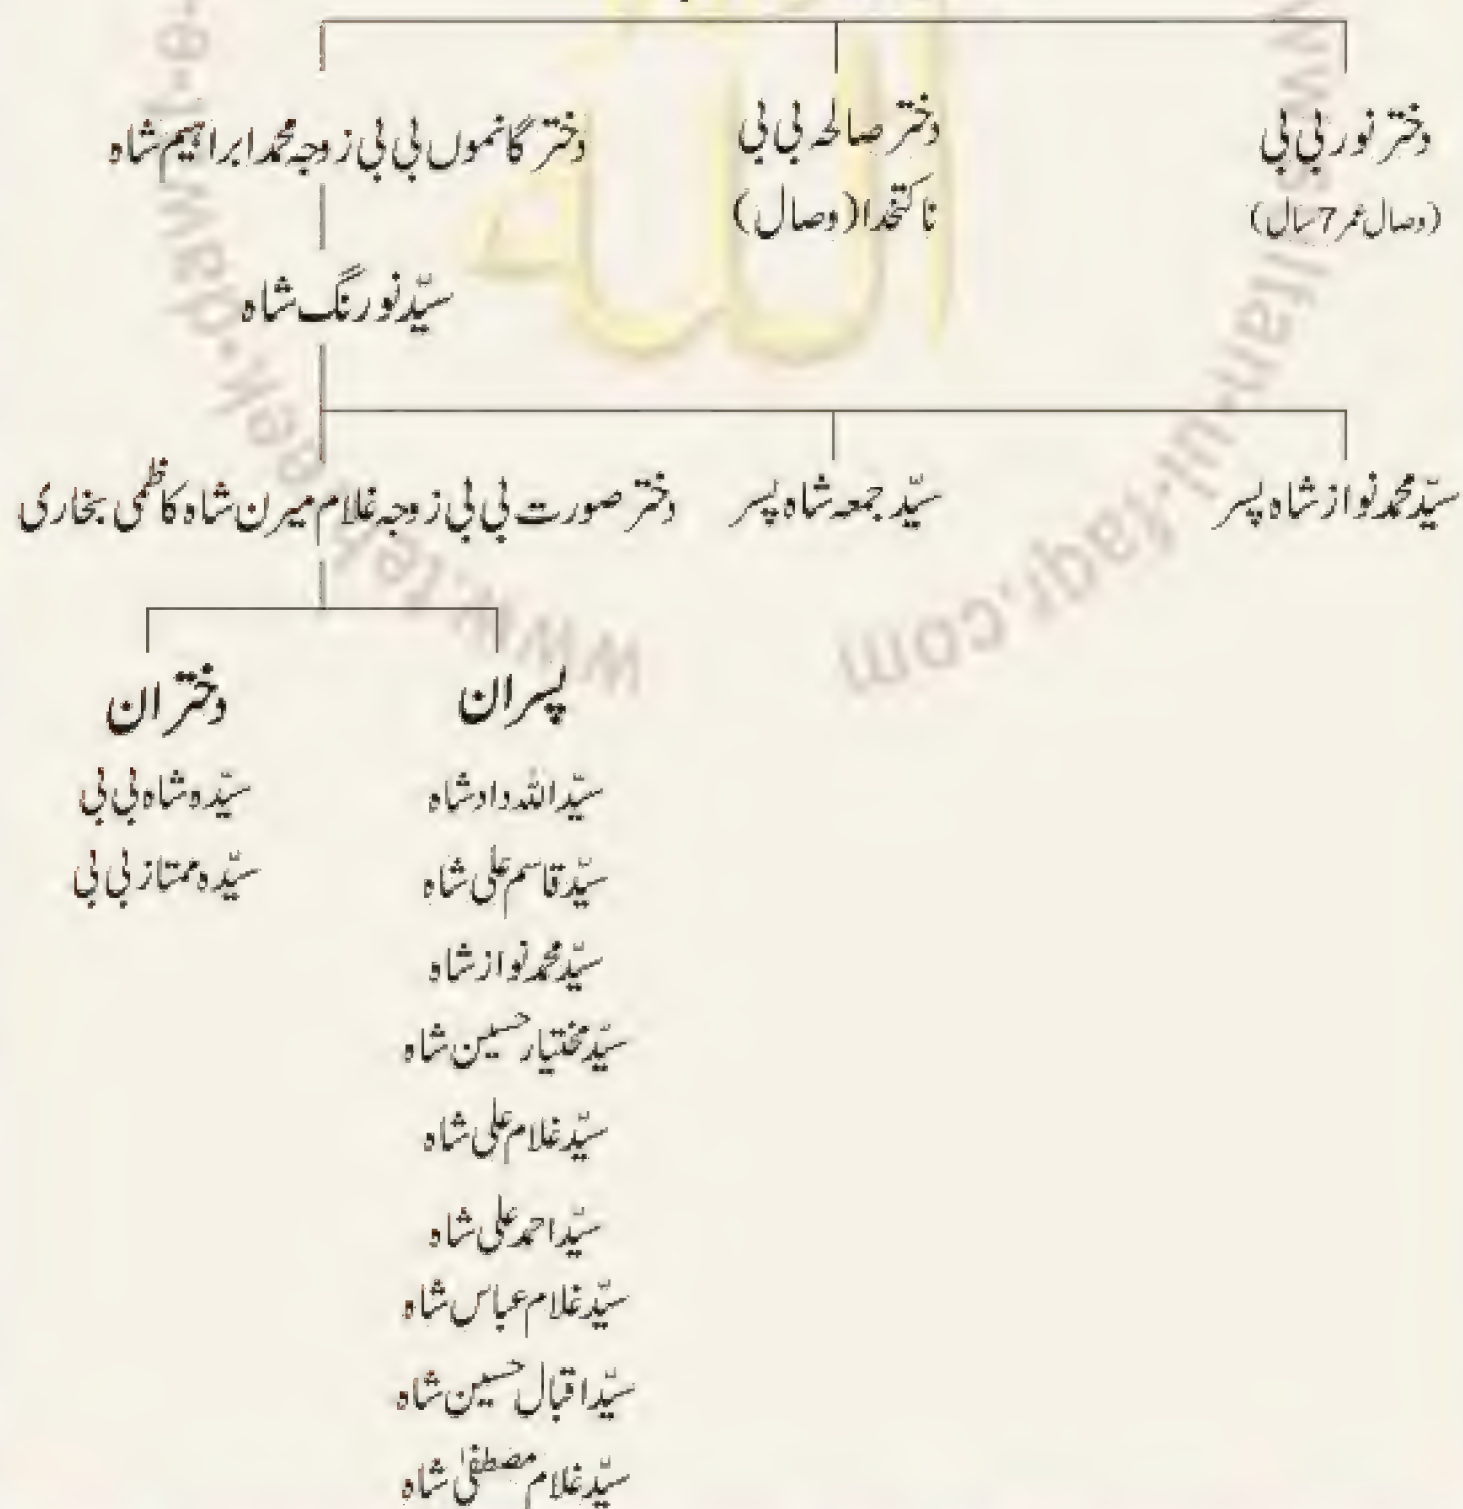 دختر نور بی بی
(وصال عمر 7 سال)
دختر صالحہ بی بی
ناکتخدا (وصال)
دختر گانموں بی بی زوجہ محمد ابراہیم شاہ
سیّد نورنگ شاہ
سیّد محمد نواز شاہ پسر
سیّد جمعہ شاہ پسر
دختر صورت بی بی زوجہ غلام میرن شاہ کاظمی بخاری
پسران
سیّد اللہ داد شاہ
سیّد قاسم علی شاہ
سیّد محمد نواز شاہ
سیّد مختیار حسین شاہ
سیّد غلام علی شاہ
سیّد احمد علی شاہ
سیّد غلام عباس شاہ
سیّد اقبال حسین شاہ
سیّد غلام مصطفیٰ شاہ
دختران
سیّدہ شاہ بی بی
سیّدہ ممتاز بی بی
اللہ